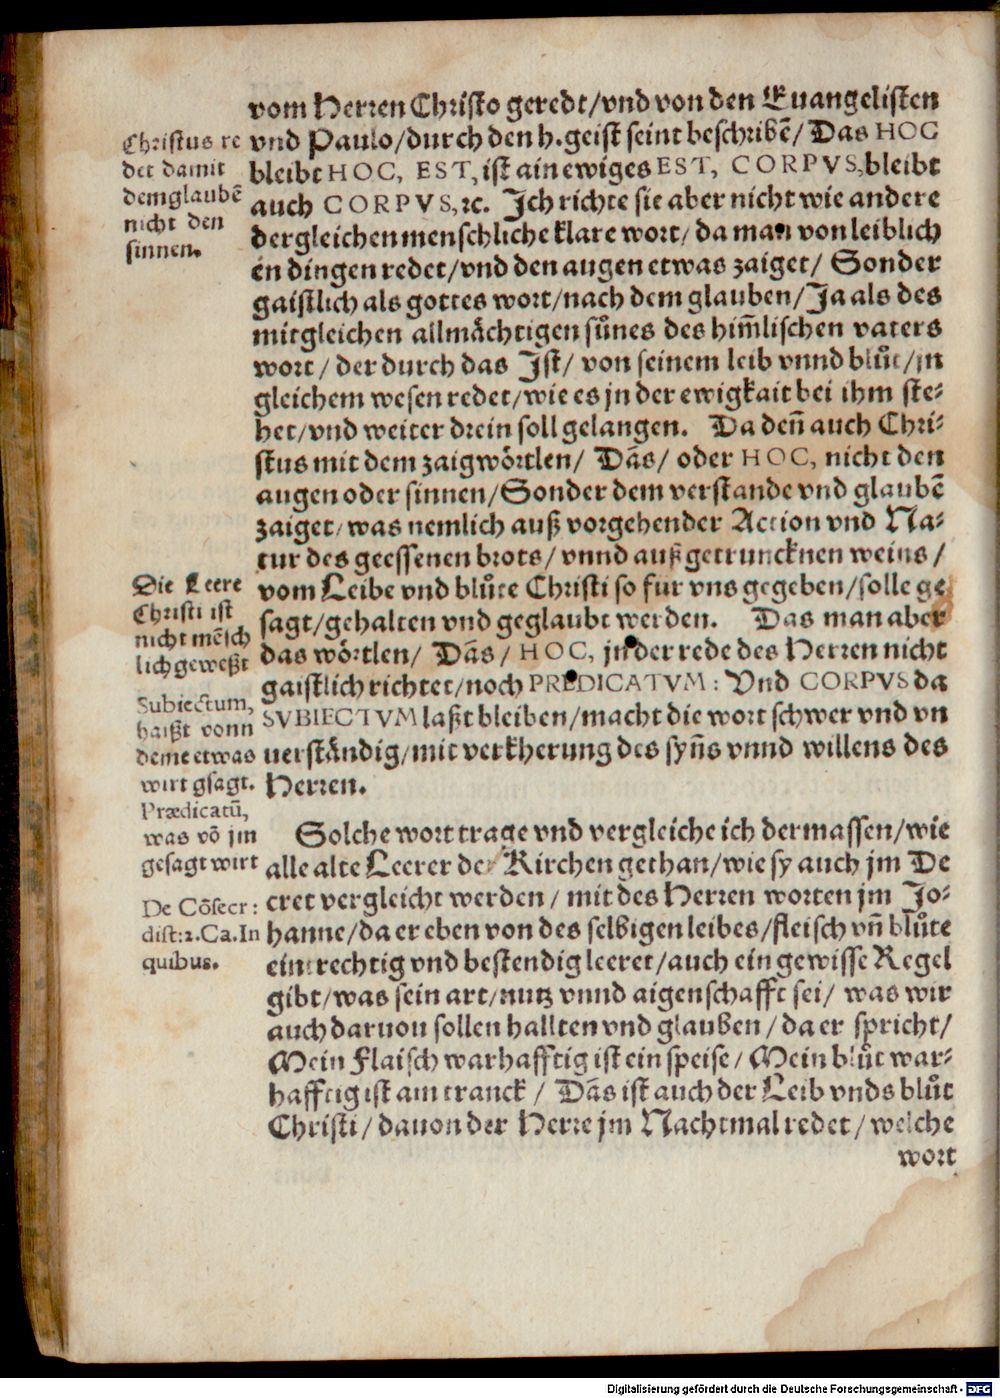 vom Herren Christo geredt/vnd von den Euangelisten
vnd Paulo/durch den h.geist seint beschribē/ Das HOC
bleibt HOC, EST, ist ain ewiges EST, CORPVS, bleibt
auch CORPVS,ꝛc. Ich richte sie aber nicht wie andere
dergleichen menschliche klare wort/ da man von leiblich
en dingen redet/vnd den augen etwas zaiget/ Sonder
gaistlich als gottes wort/nach dem glauben/Ja als des
mitgleichen allmächtigen sůnes des him̄lischen vaters
wort/ der durch das Ist/ von seinem leib vnnd blůt/jn
gleichem wesen redet/wie es jn der ewigkait bei ihm ste⸗
het/vnd weiter drein soll gelangen. Da deñ auch Chri⸗
stus mit dem zaigwörtlen/ Dās/ oder HOC, nicht den
augen oder sinnen/Sonder dem verstande vnd glaubē
zaiget/was nemlich auß vorgehender Action vnd Na⸗
tur des geessenen brots/ vnnd auß getruncknen weins/
vom Leibe vnd blůte Christi so fur vns gegeben/solle ge
sagt/gehalten vnd geglaubt werden. Das man aber
das wörtlen/ Dās/ HOC, jn der rede des Herren nicht
gaistlich richtet/noch PREDICATVM: Vnd CORPVS da
SVBIECTVM laßt bleiben/macht die wort schwer vnd vn
uerständig/mit verkherung des syñs vnnd willens des
Herren.
Solche wort trage vnd vergleiche ich dermassen/wie
alle alte Leerer der Kirchen gethan/wie sy auch jm De
cret vergleicht werden/ mit des Herren worten jm Jo⸗
hanne/da er eben von des selbigen leibes/fleisch vñ blůte
eintrechtig vnd bestendig leeret/auch ein gewisse Regel
gibt/was sein art/nutz vnnd aigenschafft sei/ was wir
auch daruon sollen hallten vnd glauben/da er spricht/
Mein Flaisch warhafftig ist ein speise/ Mein blůt war⸗
hafftig ist ain tranck/ Dās ist auch der Leib vnds blůt
Christi/ dauon der Herre jm Nachtmal redet/ welche
wort
Christus re
det damit
dem glaubē
nicht den
sinnen.
Die Leere
Christi ist
nicht mēsch
lich geweßt
Subiectum,
haißt vonn
deme etwas
wirt gsagt.
Prædicatū,
was vō jm
gesagt wirt
De Cōsecr:
dist:2.Ca.In
quibus.
Digitalisierung gefördert durch die Deutsche Forschungsgemeinschaft - DFG